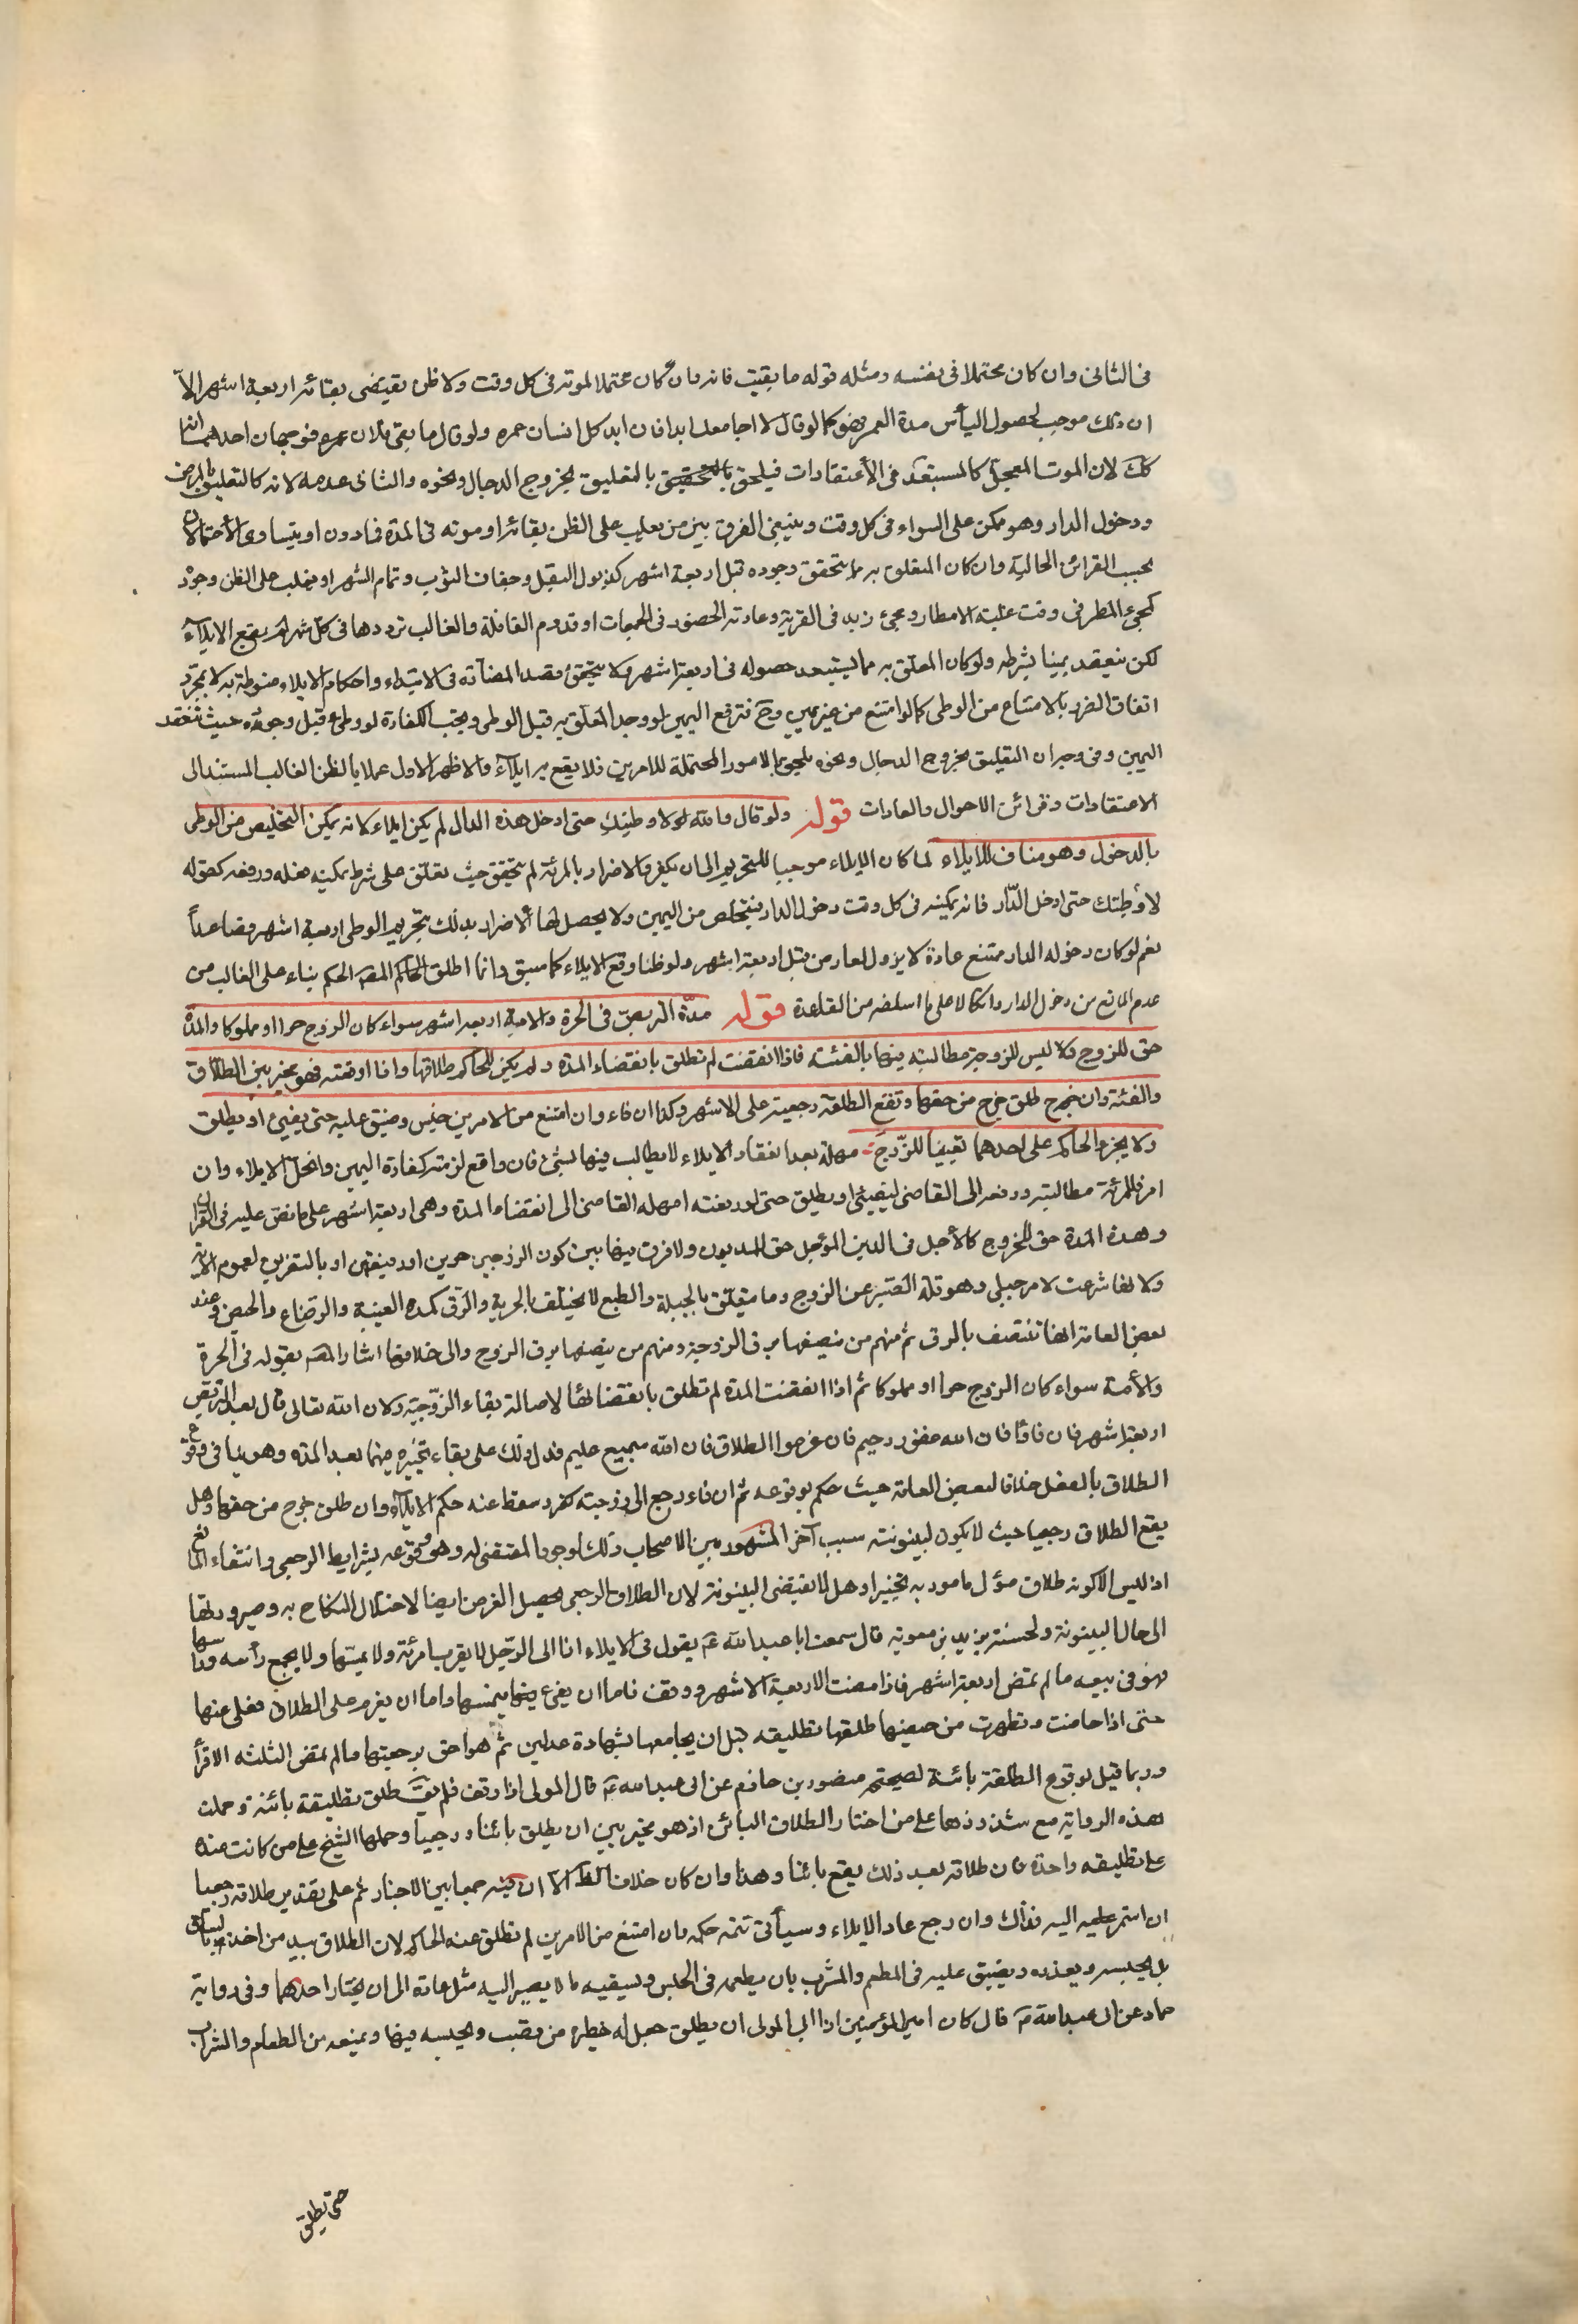 فى الثانى وان كان محتملا فى نفسه ومثله قوله ما بقيت فانه وان كان محتملا لموته فى كل وقت ولا ظن يقتضى بقائه اربعة اشهر الا
ان ذلك موجب لحصول اليأس مدة العمر فهو كما لو قال لا اجامعك ابدا فان ابد كل انسان عمره ولو قال ما بقى فلان فوجهان احدهما انه
كك لان الموت المعجل كالمستبعد فى الاعتقادات فيلحق بالتعليق بخروج الدجال ونحوه والثانى عدمه لانه كالتعليق بالمرض
ودخول الدار وهو ممكن على السواء فى كل وقت وينبغى الفرق بين من يغلب على الظن بقائه او موته فى المدة فما دون او يتساوى الاحتمالان
بحسب القرائن الحالية وان كان المعلق به مما يتحقق وجوده قبل اربعة اشهر كذبول البقل وجفاف الثوب وتمام الشهر او يغلب على الظن وجوده
كمجئ المطر فى وقت غلبة الامطار ومجئ زيد فى القرية وعادته الحضور فى الجمعات او قدوم القافلة والغالب ترددها فى كل شهر لم يقع الايلاء
لكن ينعقد يمينا بشرطه ولو كان المعلق به مما لا يستبعد حصوله فى اربعة اشهر ولا يتحقق قصد المضارة فى الابتداء واحكام الايلاء منوطة به لا بمجرد
اتفاق الضرر بالامتناع من الوطى كما لو امتنع من غير يمين وح فترفع اليمين لو وجد المعلق به قبل الوطى ويجب الكفارة لو وطى قبل وجوده حيث تنعقد
اليمين وفى وجه ان التعليق بخروج الدجال ونحوه يلحق بالامور المحتملة للامرين فلا يقع به ايلاء والاظهر الاول عملا بالظن الغالب المستند الى
الاعتقادات وقرائن الاحوال والعادات قوله ولو قال والله لا وطيتك حتى ادخل هذه الدار لم يكن ايلاء لانه يمكن التخليص من الوطى
بالدخول وهو مناف للايلاء لما كان الايلاء موجبا للتحريم الى ان يكفر والاضرار بالمرئة لم يتحقق حيث تعلق على شرط يمكنه فعله ورفعه كقوله
لا وطئتك حتى ادخل الدار فانه يمكنه فى كل وقت دخول الدار فيتخلص من اليمين ولا يحصل لها الاضرار بذلك بتحريم الوطى اربعة اشهر فصاعدا
نعم لو كان دخوله الدار ممتنع عادة لا يزول لعارض قبل اربعة اشهر ولو ظنا وقع الايلاء كما سبق وانما اطلق المص الحكم بناء على الغالب من
عدم المانع من دخول الدار واتكالا على ما اسلفه من القاعدة قوله مدة التربص فى الحرة والامة اربعة اشهر سواء كان الزوج حرا او مملوكا والمدة
حق للزوج ولا ليس للزوجة مطالبته فيها بالفئة فاذا انقضت لم تطلق بانقضاء المدة ولم يكن للحاكم طلاقها واذا اوقفته فهو مخير بين الطلاق
والفئة وان خرج طلق خرج من حقها وتقع الطلقة رجعية على الاشهر وكذا ان فاء وان امتنع من الامرين حبس وضيق عليه حتى يفئ او يطلق
ولا يجبره الحاكم على احدهما تعيينا للزوج مهلة بعد انعقاد الايلاء لا يطالب فيها بشئ فان واقع لزمته كفارة اليمين وانحل الايلاء وان
امر فللمرئة مطالبته ورفعه الى القاضى ليفئ او يطلق حتى لو رفعته امهله القاضى الى انقضاء المدة وهى اربعة اشهر على ما نص عليه فى القران
وهذه المدة حق للزوج كالاجل فى الدين المؤجل حق المديون ولا فرق فيها بين كون الزوجين حرين او رقيقين او بالتفريق لعموم الاية
ولانها شرعت لامر جبلى وهو قلة الصبر عن الزوج وما يتعلق بالجبلة والطبع لا يختلف بالحرية والرق كمدة العنة والرضاع والحيض وعند
بعض العامة انها تنتصف بالرق ثم منهم من ينصفها برق الزوجة ومنهم من ينصفها برق الزوج والى خلافها اشار المص بقوله فى الحرة
والأمة سواء كان الزوج حرا او مملوكا ثم اذا انقضت المدة لم تطلق بانقضائها لاصالة بقاء الزوجية ولان الله تعالى قال بعد التربص
اربعة اشهر فان فاؤا فان الله غفور رحيم فان عزموا الطلاق فان الله سميع عليم فدل ذلك على بقاء تخيره فيهما بعد المدة وهو ينافى وقوع
الطلاق بالفعل خلافا لبعض العامة حيث حكم بوقوعه ثم ان فاء ورجع الى زوجته كفر وسقط عنه حكم الايلاء وان طلق خرج من حقها وهل
يقع الطلاق رجعيا حيث لا يكون لبينونته سبب آخر المشهور بين الاصحاب ذلك لوجود المقتضى له وهو وقوعه بشرايط الرجعى وانتفاء المانع
اذ ليس الا كونه طلاق مؤل مامور به تخيرا وهل لا يقتضى البينونة لان الطلاق الرجعى يحصل الغرض ايضا لاختلال النكاح به وصيرورتها
الى حال البينونة ولحسنة بريد بن معوية قال سمعت ابا عبد الله ع يقول فى الايلاء اذا الى الرجل لا يقرب امرئة ولا يمسها ولا يجمع رأسه ورأسها
فهو فى سعة ما لم تمض اربعة اشهر فاذا مضت الاربعة الاشهر ووقف فاما ان يفئ فيمسها واما ان يعزم على الطلاق فخلى عنها
حتى اذا حاضت وتطهرت من حيضها طلقها تطليقه قبل ان يجامعها بشهادة عدلين ثم هو احق برجعتها ما لم تمض الثلثة الاقرأ
وربما قيل بوقوع الطلقة بائنة لصحيحة منصور بن حازم عن ابى عبد الله ع قال المولى اذا وقف فلم يفئ طلق تطليقة بائنة وحملت
هذه الرواية مع شذوذها على من اختار الطلاق البائن اذ هو مخير بين ان يطلق بائنا ورجعيا وحملها الشيخ على من كانت عنده
على تطليقه واحدة فان طلاقه بعد ذلك يقع بائنا وهذا وان كان خلاف الظ الا ان فيه جمعا بين الاخبار ثم على تقدير طلاقه رجعيا
ان استمر عليه اليه فذاك وان رجع عاد الايلاء وسيأتى تتمة حكمه وان امتنع من الامرين لم تطلق عنه الحاكم لان الطلاق بيد من اخذ بالساق
بل يحبسه ويعذبه ويضيق عليه فى المطعم والمشرب بان يطعمه فى الحبس ويسقيه ما لا يصبر اليه مثله عادة الى ان يختار احدهما وفى رواية
حماد عن ابى عبد الله ع قال كان امير المؤمنين اذا ابى المولى ان يطلق جعل له حظيرة من قصب ويحبسه فيها ويمنعه من الطعام والشراب
حتى يطلق